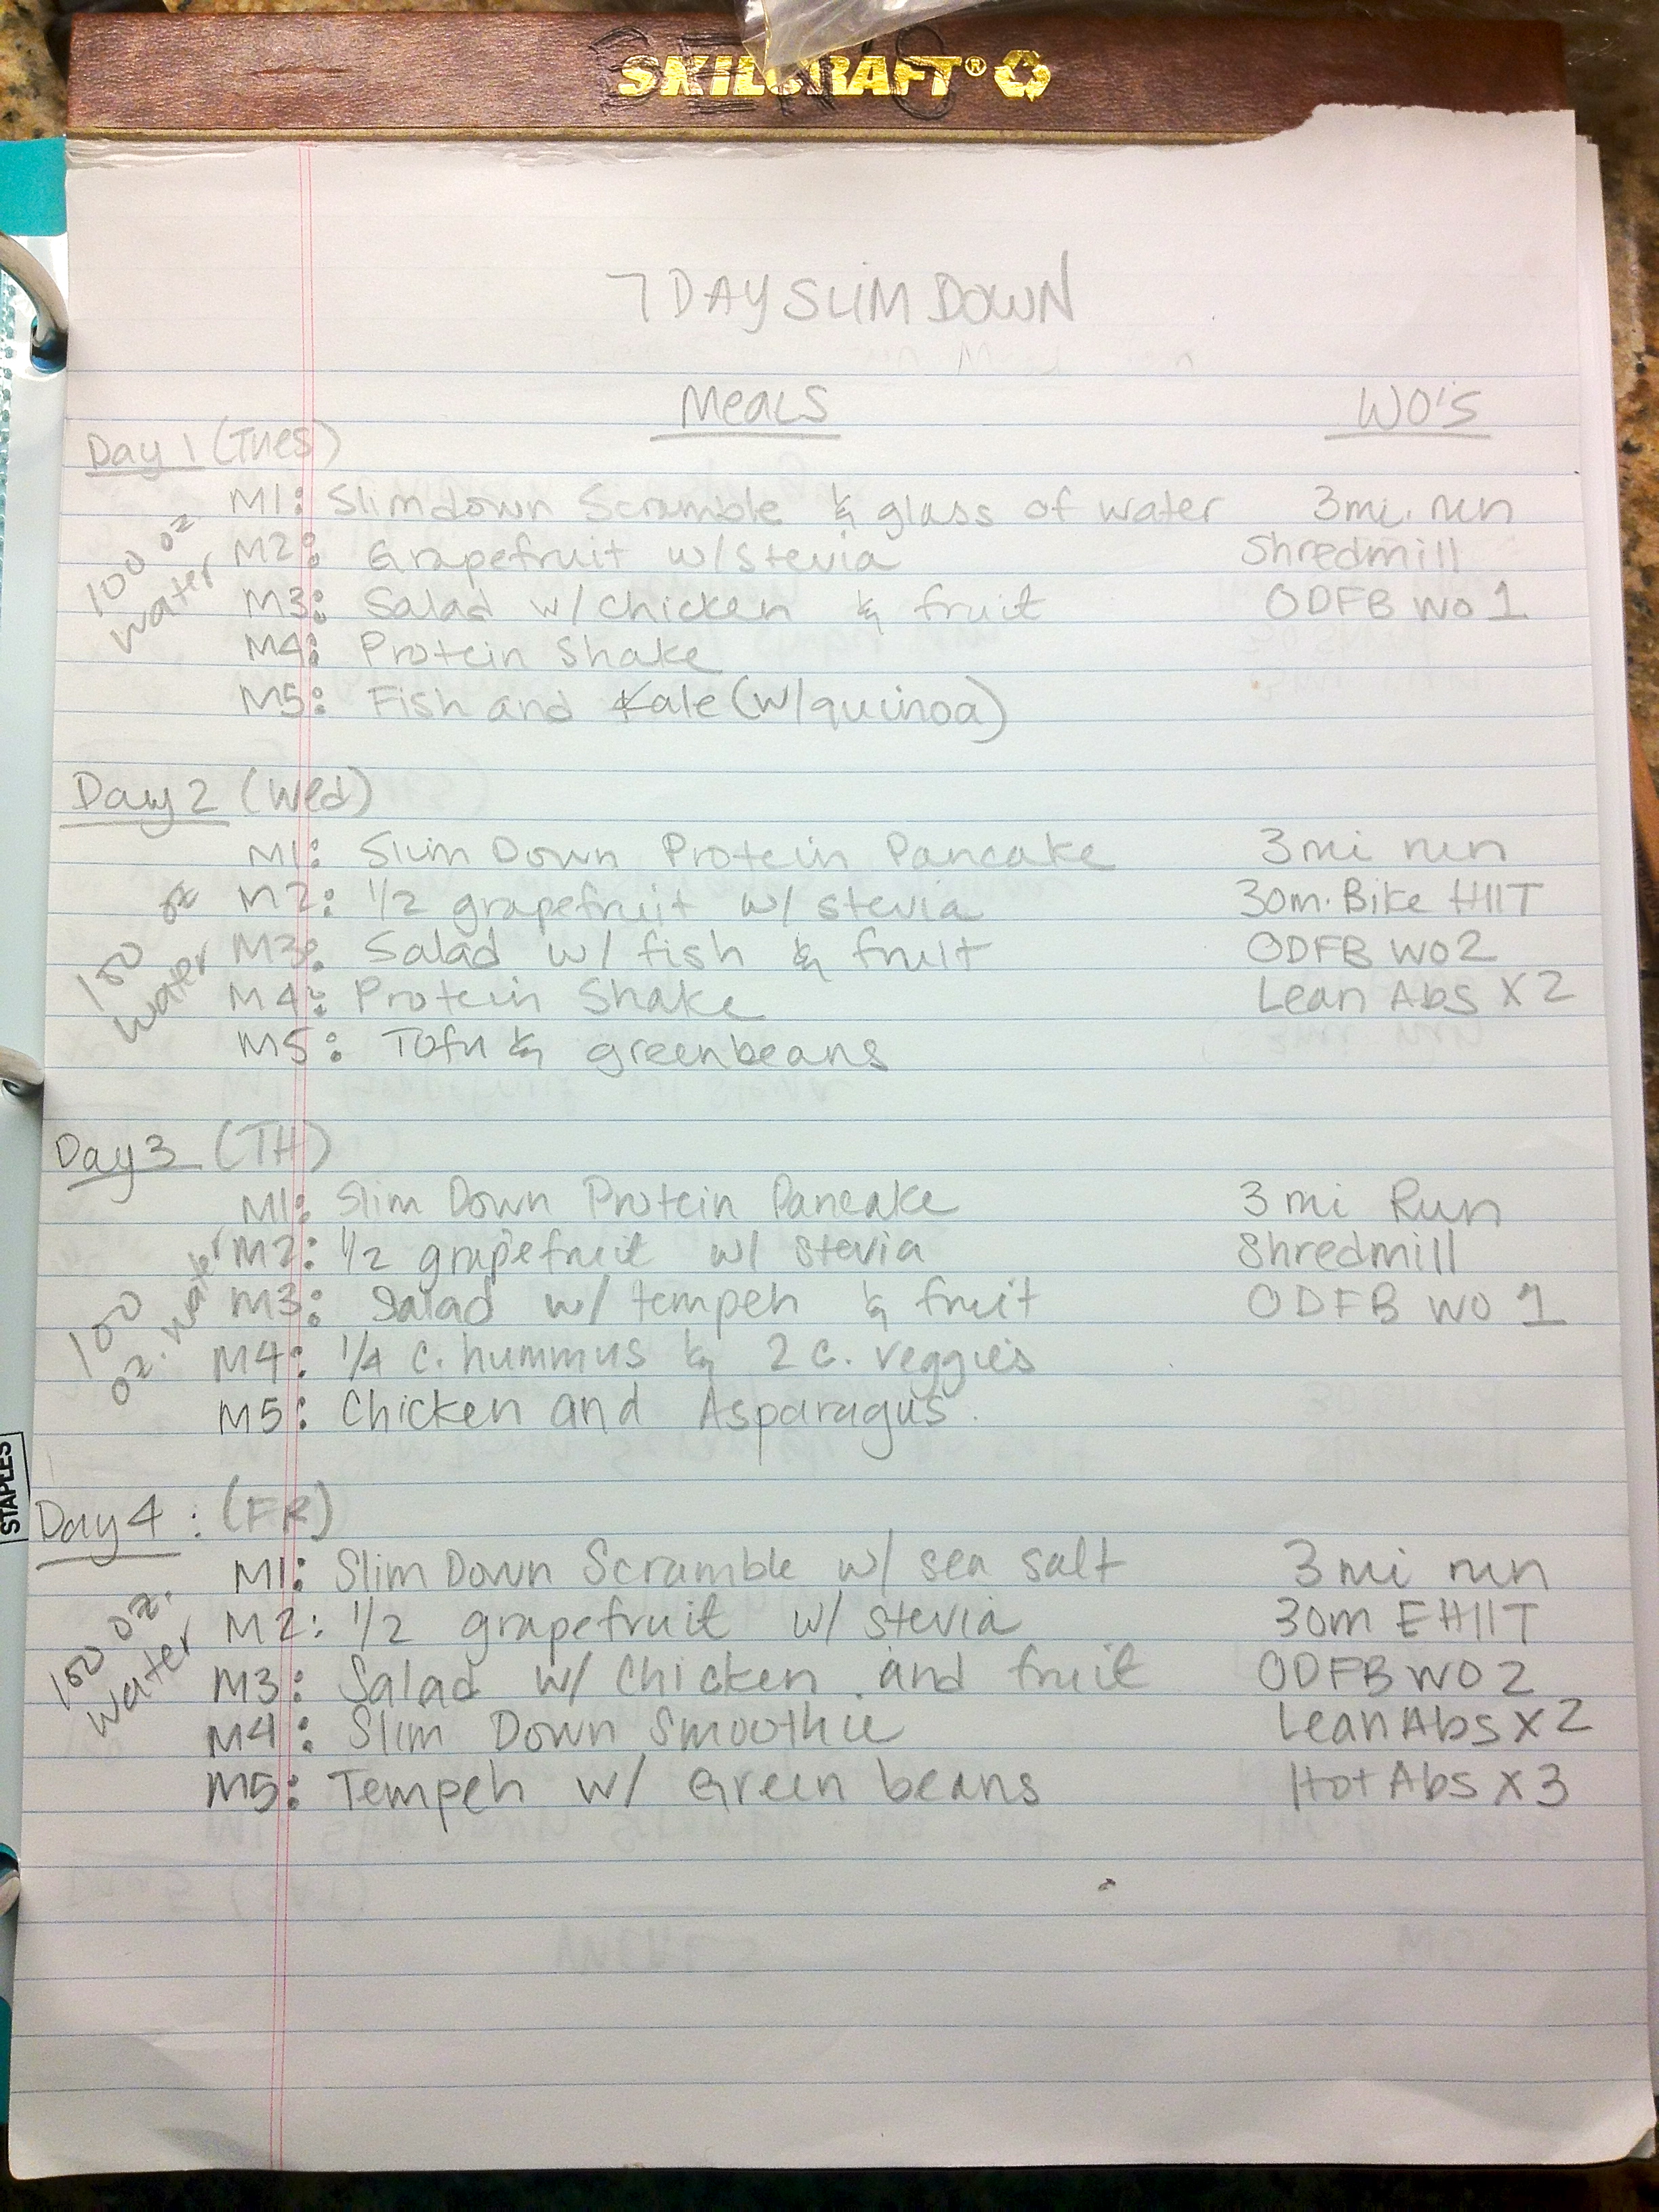 SKILCRAFT®
7 DAY SLIM DOWN
MEALS WO'S
Day 1 (Tues)
M1: Slimdown Scramble & glass of water 3mi. run
M2: Grapefruit w/stevia Shredmill
M3: Salad w/chicken & fruit ODFB WO 1
M4: Protein Shake
M5: Fish and Kale (w/quinoa)
100 oz
water
Day 2 (Wed)
M1: Slim Down Protein Pancake 3mi run
M2: 1/2 grapefruit w/ stevia 30m. Bike HIIT
M3: Salad w/ fish & fruit ODFB WO2
M4: Protein Shake Lean Abs X2
M5: Tofu & greenbeans
100 oz
water
Day 3 (TH)
M1: Slim Down Protein Pancake 3 mi Run
M2: 1/2 grapefruit w/ stevia Shredmill
M3: Salad w/ tempeh & fruit ODFB WO 1
M4: 1/4 c. hummus & 2 c. veggies
M5: Chicken and Asparagus.
100
oz. water
Day 4 : (FR)
M1: Slim Down Scramble w/ sea salt 3 mi run
M2: 1/2 grapefruit w/ stevia 30m EHIIT
M3: Salad w/ Chicken and fruit ODFB WO 2
M4: Slim Down Smoothie Lean Abs X2
M5: Tempeh w/ Green beans Hot Abs X3
100 oz.
water
STAPLES